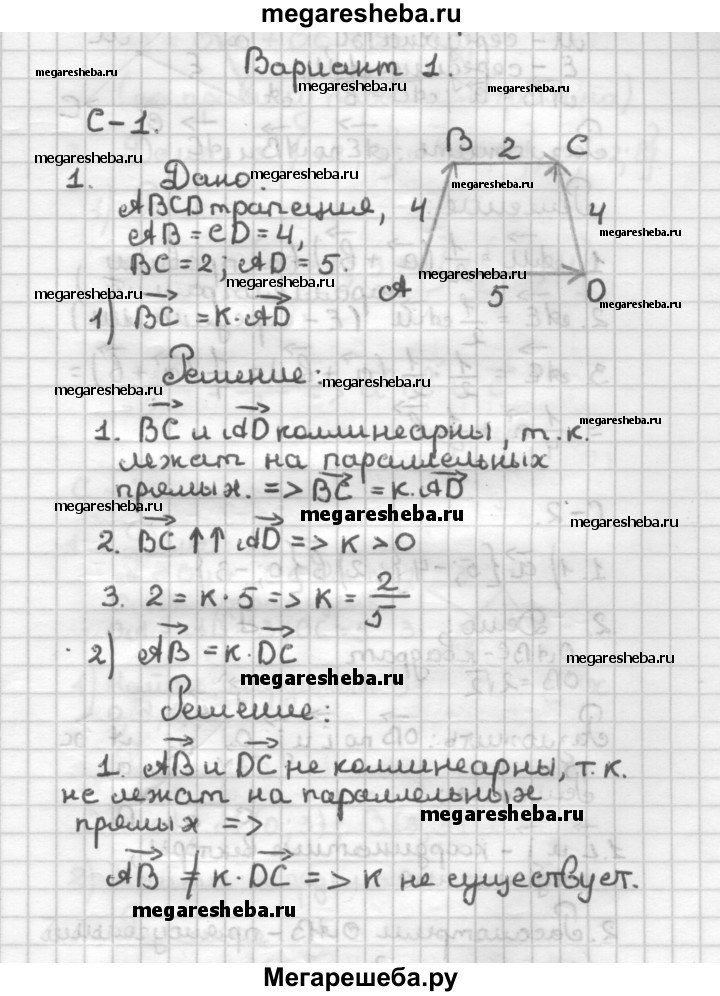 megaresheba.ru
Вариант 1.
megaresheba.ru
megaresheba.ru
megaresheba.ru
С-1.
megaresheba.ru
B 2 C
1. Дано:
megaresheba.ru
megaresheba.ru
ABCD трапеция,
4
4
megaresheba.ru
AB = CD = 4,
BC = 2, AD = 5.
megaresheba.ru
megaresheba.ru
A 5 D
megaresheba.ru
megaresheba.ru
1) BC = K · AD
Решение:
megaresheba.ru
megaresheba.ru
1. BC и AD коллинеарны, т.к.
megaresheba.ru
лежат на параллельных
прямых. => BC = K · AD
megaresheba.ru
megaresheba.ru
megaresheba.ru
2. BC ↑↑ AD => K > 0
3. 2 = K · 5 => K = 2/5
2) AB = K · DC
megaresheba.ru
megaresheba.ru
Решение:
1. AB и DC не коллинеарны, т.к.
не лежат на параллельных
megaresheba.ru
прямых =>
AB ≠ K · DC => K не существует.
megaresheba.ru
Мегарешеба.ру